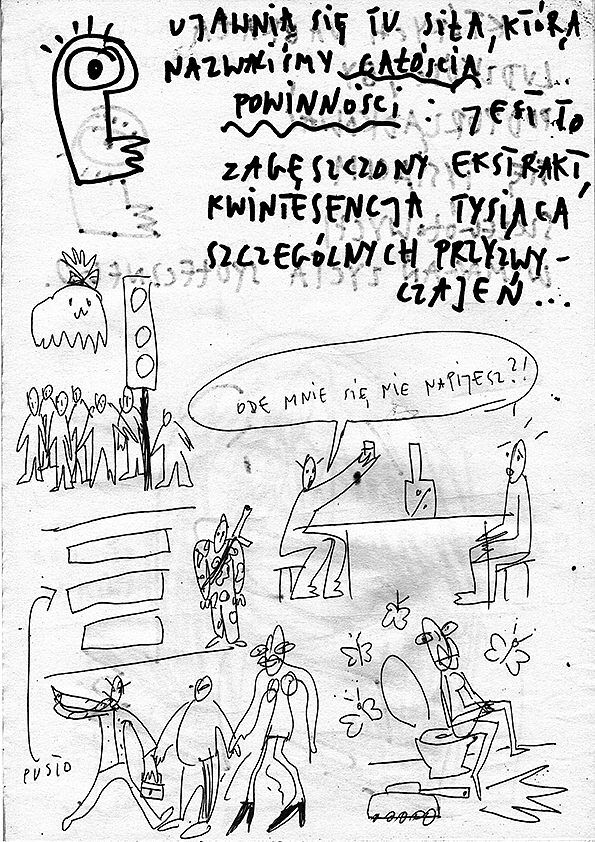 UJAWNIA SIĘ TU SIŁA, KTÓRĄ
NAZWALIŚMY CAŁOŚCIĄ
POWINNOŚCI : JEST TO
ZAGĘSZCZONY EKSTRAKT,
KWINTESENCJA TYSIĄCA
SZCZEGÓLNYCH PRZYZWY-
CZAJEŃ...
ODE MNIE SIĘ NIE NAPIJESZ?!
%
PUSTO